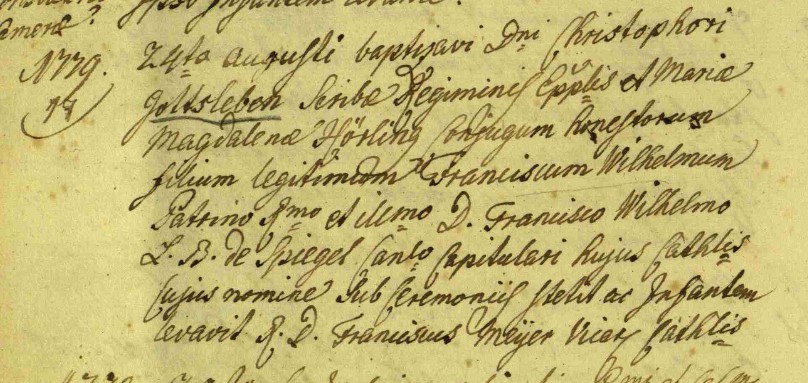 ipso Infantem levante.
Cameræ?
1779.
17
24ta Augusti baptizavi Dni Christophori
Gottsleben Scribæ Regiminis Epplis et Mariæ
Magdalenæ Hörling Conjugum honestorum
filium legitimum Franciscum Wilhelmum
Patrino Rmo et illmo D. Francisco Wilhelmo
L. B. de Spiegel Canco Capitulari hujus Cathlis
Cujus nomine sub Ceremoniis stetit ac Infantem
levavit R. D. Franciscus Meyer Vicar Cathlis